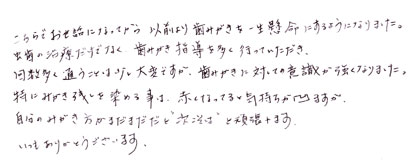 こちらでお世話になってから 以前より歯みがきを一生懸命にするようになりました。
虫歯の治療だけでなく 歯みがき指導を多く行っていただき、
回数多く通うことは少し大変ですが、歯みがきに対しての意識が強くなりました。
特にみがき残しを染める事は、赤くなってると気持ちが凹ますが、
自分のみがき方がまだまだだと"次こそは"と頑張れます。
いつもありがとうございます。